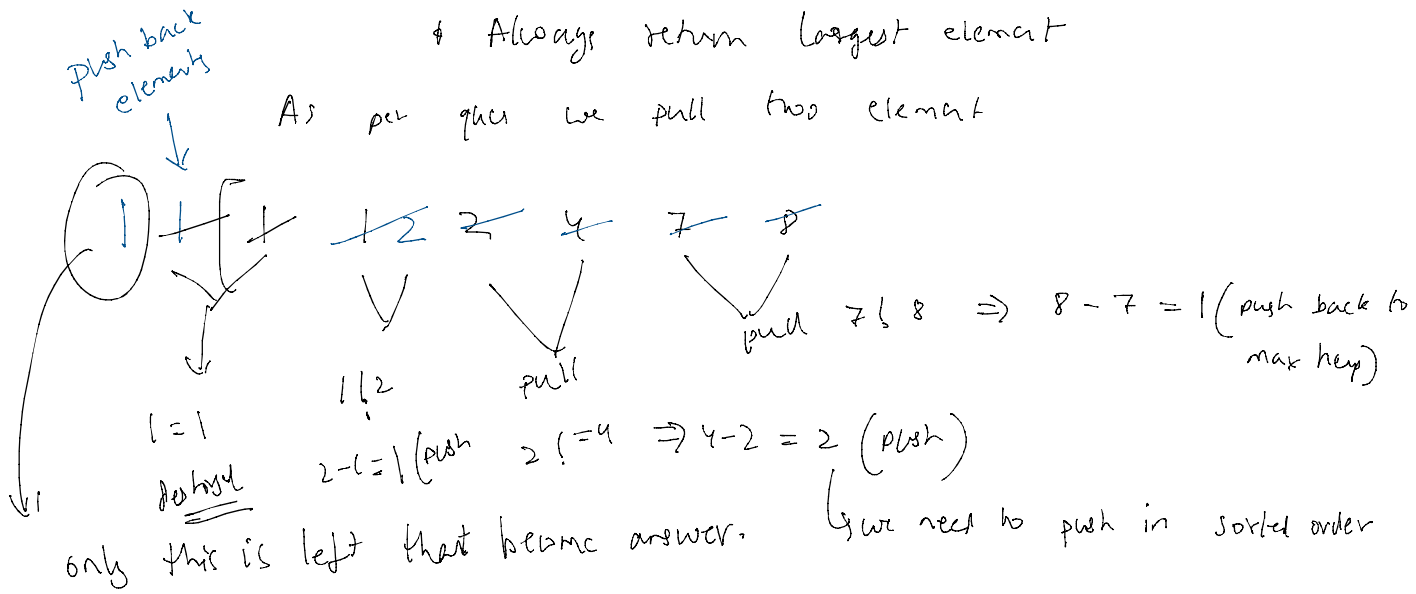 push back
elements
Always return largest element
As per ques we pull two element
1 1 1 1 2 2 4 7 8
pull 7 ! 8 ⇒ 8 - 7 = 1 (push back to
max heap)
1 ! 2 pull
1 = 1
2-1=1 (push 2 != 4 ⇒ 4-2 = 2 (push)
destroyed
↳ we need to push in sorted order
only this is left that become answer.